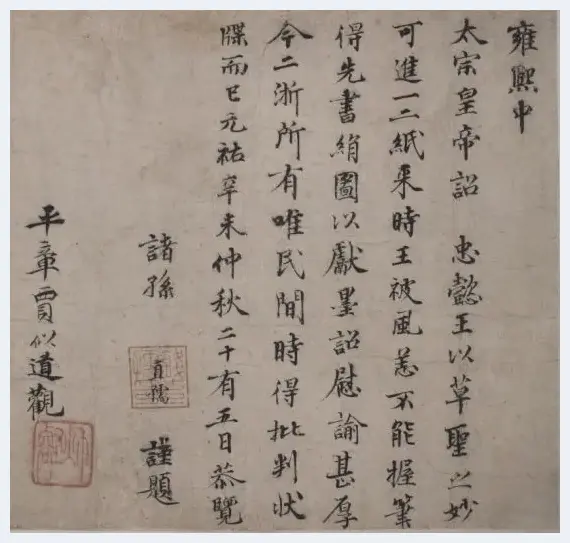 雍熙中
太宗皇帝詔 忠懿王以草聖之妙
可進一二紙来時王被風恙不能握筆
得先書絹圖以獻墨詔慰諭甚厚
今二浙所有唯民間時得批判状
牒而已元祐辛未仲秋二十有五日恭覽
諸孫 直孺 謹題
平章賈似道觀